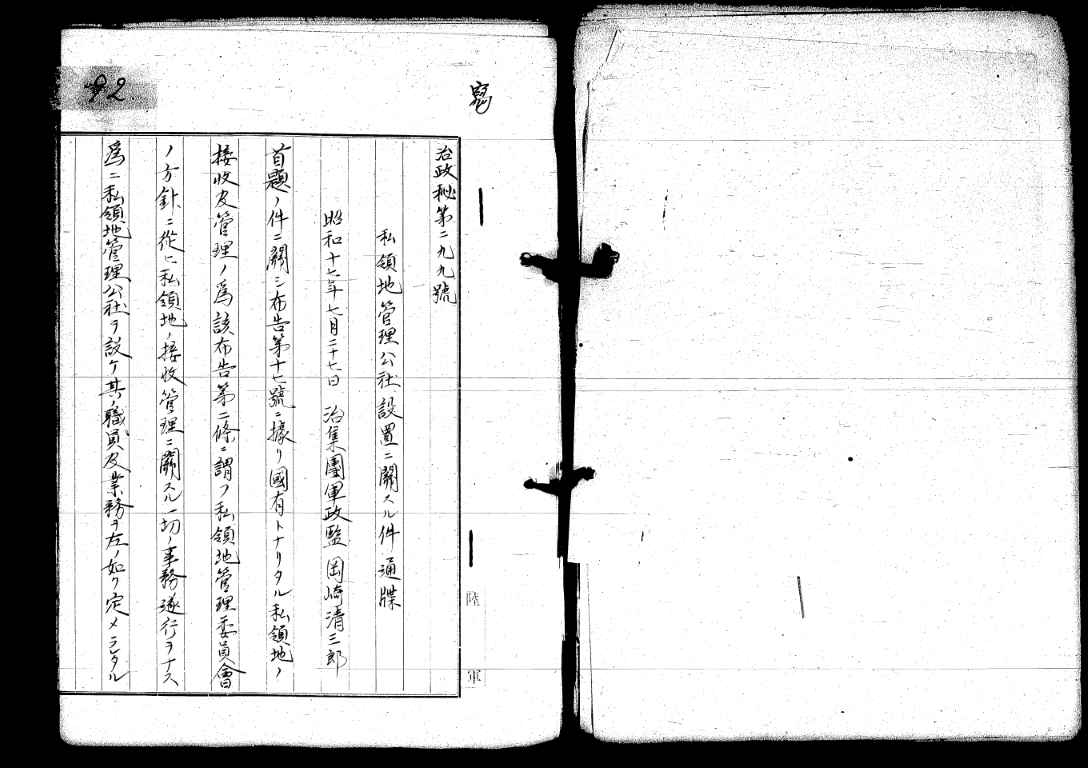 寫
92
治政秘第二九九號
私領地管理公社設置ニ關スル件通牒
昭和十七年七月二十七日 治集團軍政監 岡崎清三郎
首題ノ件ニ關シ布告第十七號ニ據リ國有トナリタル私領地ノ
接收及管理ノ爲該布告第二條ニ謂フ私領地管理委員會
ノ方針ニ從ヒ私領地ノ接收管理ニ關スル一切ノ事務遂行ヲナス
爲ニ私領地管理公社ヲ設ケ其ノ職員及業務ヲ左ノ如ク定メラレタル
陸軍